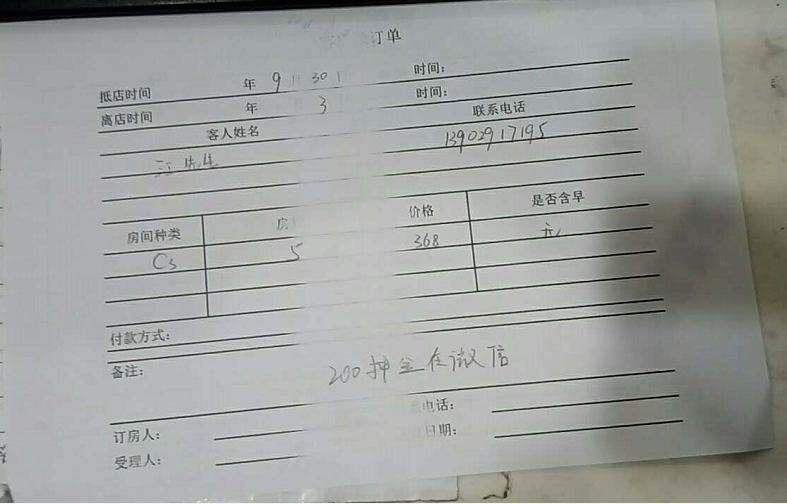 订单
抵店时间 年 9 30 时间：
离店时间 年 3 时间：
客人姓名 联系电话
江先生 13902917195
房间种类 房 价格 是否含早
C3 5 368 无
付款方式：
备注： 200押金在微信
订房人： 电话：
受理人： 日期：